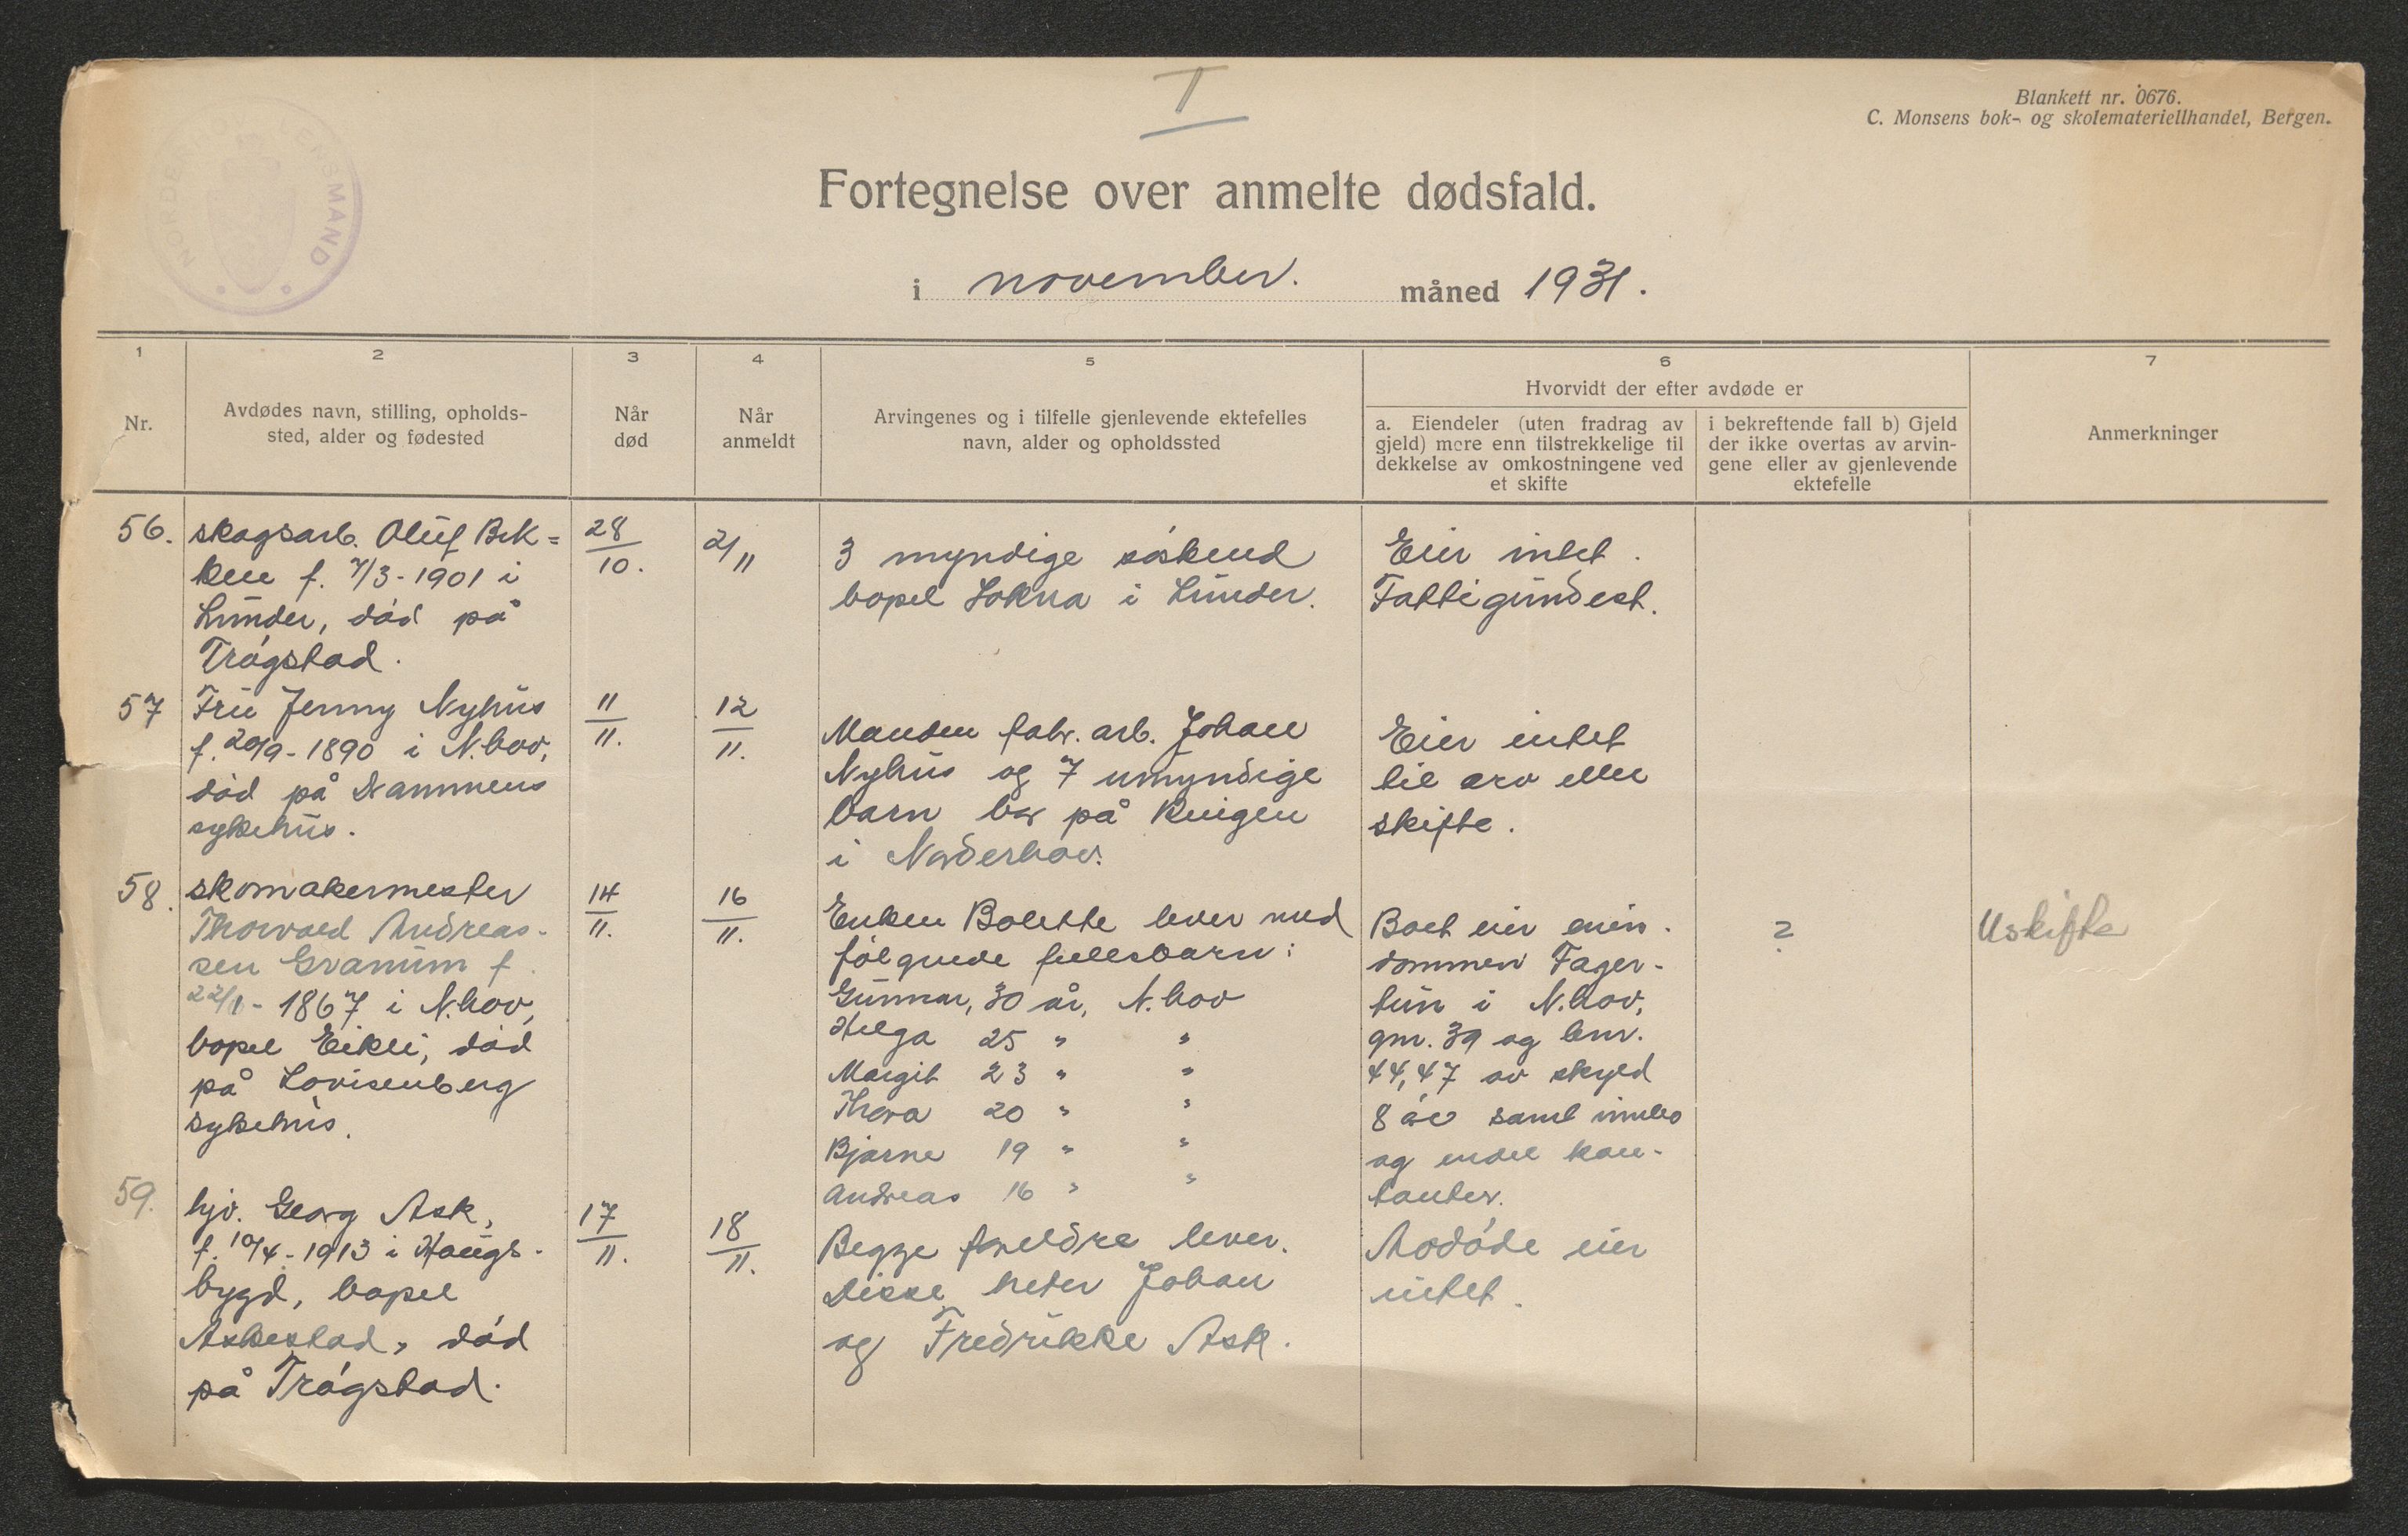 I
Blankett nr. 0676.
C. Monsens bok- og skolemateriellhandel, Bergen.
Fortegnelse over anmelte dødsfald.
i november. måned 1931.
1
2
3
4
5
6
7
Nr.
Avdødes navn, stilling, opholds-
sted, alder og fødested
Når
død
Når
anmeldt
Arvingenes og i tilfelle gjenlevende ektefelles
navn, alder og opholdssted
Hvorvidt der efter avdøde er
a. Eiendeler (uten fradrag av
gjeld) mere enn tilstrekkelige til
dekkelse av omkostningene ved
et skifte
i bekreftende fall b) Gjeld
der ikke overtas av arvin-
gene eller av gjenlevende
ektefelle
Anmerkninger
56.
skogsarb. Oluf Bek=
ken f. 7/3-1901 i
Lunder, död på
Trögstad.
28/10.
2/11
3 myndige söskend
bopel Sokna i Lunder.
Eier intet.
Fattigundest.
57
Fru Jenny Nyhus
f. 20/9-1890 i N.hov,
död på Drammens
sykehus.
11/11.
12/11.
Manden fabr. arb. Johan
Nyhus og 7 umyndige
barn bor på Ringen
i Norderhov.
Eier intet
til arv eller
skifte.
58.
skomakermester
Thorvald Andreas-
sen Granum f.
22/1-1867 i N.hov,
bopel Eikli, död
på Lovisenberg
sykehus.
14/11.
16/11.
Enken Bolette lever med
fölgende fellesbarn:
Gunnar, 30 år, N.hov
Helga 25 " "
Margit 23 " "
Thora 20 " "
Bjarne 19 " "
Andreas 16 " "
Boet eier eien-
dommen Fager-
tun i N.hov,
gnr. 39 og bnr.
44,47 av skyld
8 öre samt innbo
og endel kon-
tanter.
?
Uskifte
59.
hjv. Georg Ask,
f. 10/4-1913 i Haugs-
bygd, bopel
Askestad, död
på Trögstad.
17/11.
18/11.
Begge foreldre lever.
Disse heter Johan
og Fredrikke Ask.
Avdöde eier
intet.